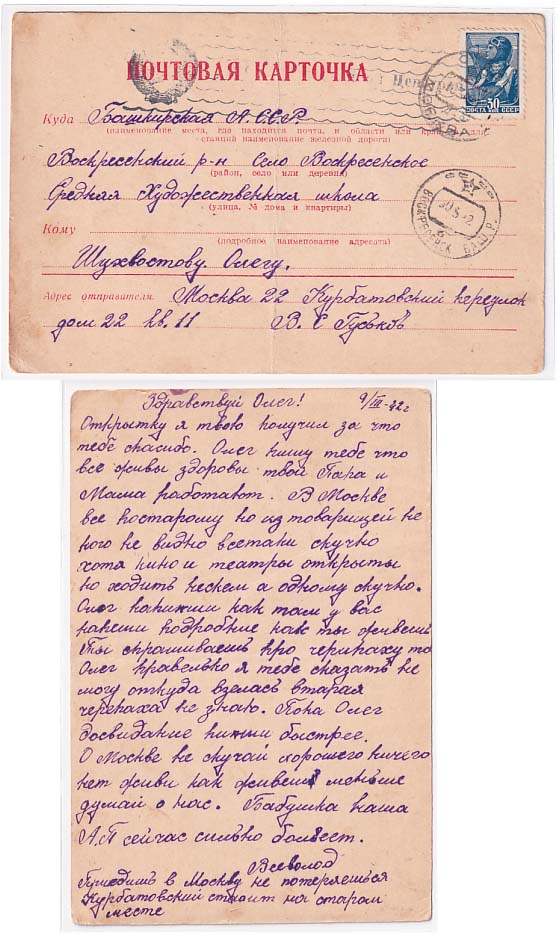 ПОЧТОВАЯ КАРТОЧКА
30
ПОЧТА СССР
Куда Башкирская А.С.С.Р.
(наименование места, где находится почта, и области или края, а для
станций наименование железной дороги)
Воскресенский р-н Село Воскресенское
(район, село или деревня)
Средняя Художественная школа
(улица, № дома и квартиры)
ВОСКРЕСЕНСК БАШ.Р.
Кому
(подробное наименование адресата)
Шухвостову Олегу.
Адрес отправителя. Москва 22 Курбатовский переулок
дом 22 кв. 11 В. С Гуськовъ
Здравствуй Олег! 9/III-42 г
Открытку я твою получил за что
тебе спасибо. Олег пишу тебе что
все живы здоровы твой Папа и
Мама работают. В Москве
все постарому но из товарищей не
кого не видно всетаки скучно
хотя кино и театры открыты
но ходить нескем а одному скучно.
Олег напиши как там у вас
напеши подробние как ты живешь
Ты спрашиваешь про черипаху то
Олег правельно я тебе сказать не
могу откуда взелась вторая
черепаха не знаю. Пока Олег
досвидание пиши быстрее.
О Москве не скучай хорошего ничего
нет живи как живешь меньше
думай о нас. Бабушка наша
А.П сейчас сильно болеет.
Всеволод
Приедишь в Москву не потеряешься
Курбатовский стоит на старом
месте